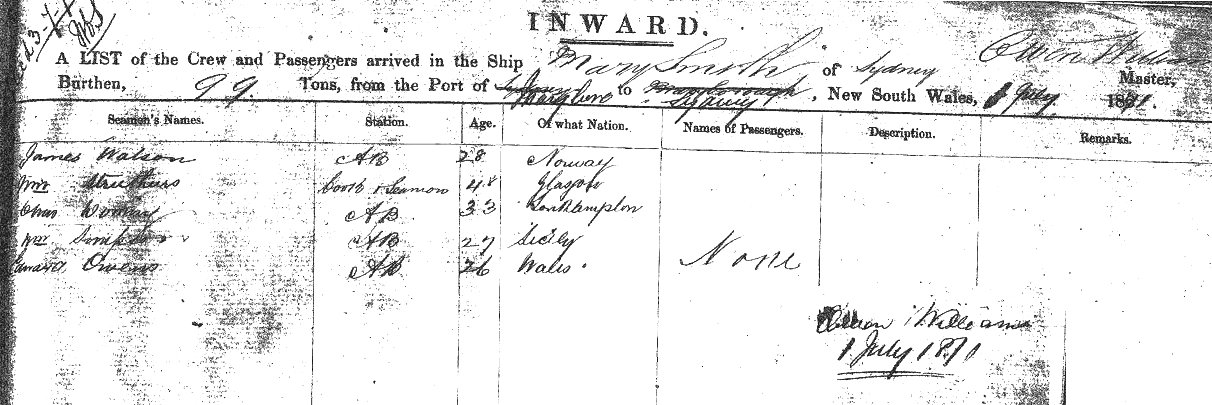 INWARD.
A LIST of the Crew and Passengers arrived in the Ship Mary Smith of Sydney Owen William Master,
Burthen, 99 Tons, from the Port of Sydney to Maryborough Sydney, New South Wales, 1 July 1871.
Seamen's Names. Station. Age. Of what Nation. Names of Passengers. Description. Remarks.
James Watson AB 28 Norway
Wm Struthers Cook & Seamon 48 Glasgow
Chas AB 33 Southampton
Wm Simpson AB 27 Sicily
Edward Owens AB 26 Wales. None
Owen Williams
1 July 1871